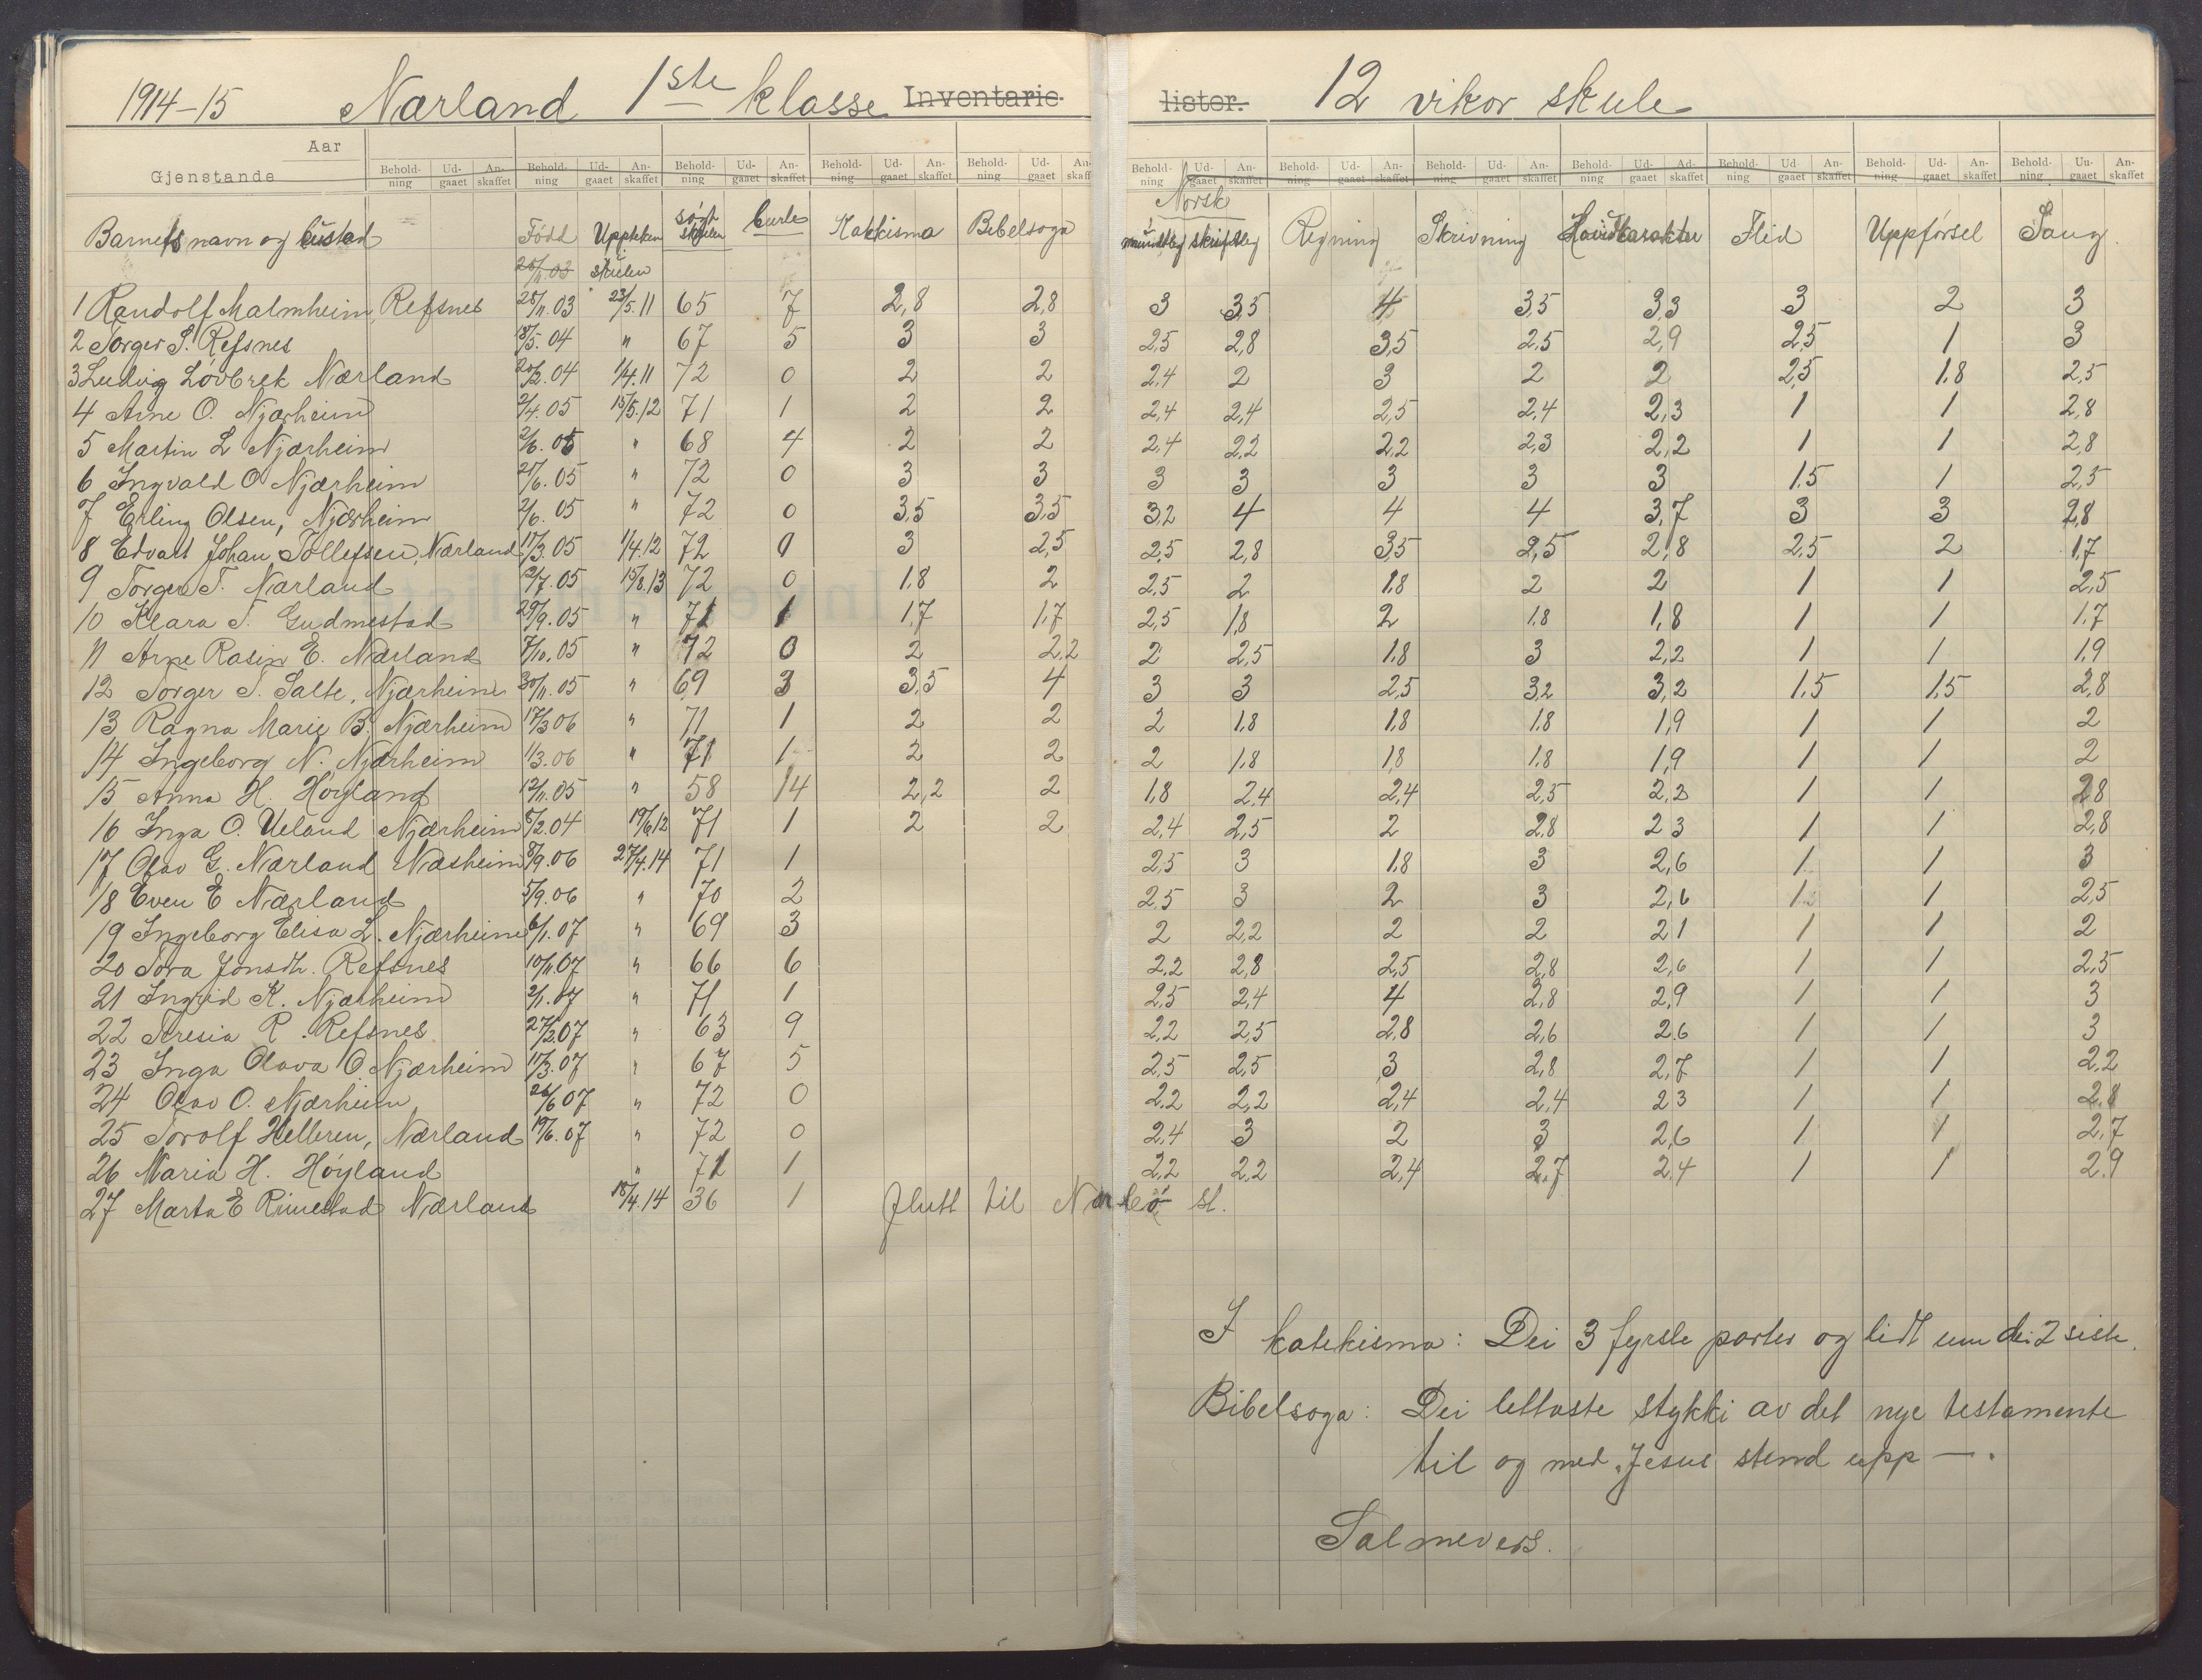 1914-15 Nærland 1ste klasse Inventarie- lister. 12 vikor skule
Aar
Gjenstande Behold-ning Ud-gaaet An-skaffet Behold-ning Ud-gaaet An-skaffet Behold-ning Ud-gaaet An-skaffet Behold-ning Ud-gaaet An-skaffet Behold-ning Ud-gaaet An-skaff Behold-ning Ud-gaaet An-skaffet Behold-ning Ud-gaaet An-skaffet Behold-ning Ud-gaaet An-skaffet Behold-ning Ud-gaaet Ad-skaffet Behold-ning Ud-gaaet An-skaffet Behold-ning Ud-gaaet An-skaffet Behold-ning Uu-gaaet An-skaffet
Norsk
Barnets navn og bustad Född Uppteken skulen søgt skulen burte Katkisma Bibelsoga mundtleg skriftleg Regning Skrivning Hovudkarakter Flid Uppförsel Sang
25/11.03
1 Randolf Malmheim, Refsnes 25/11.03 23/5.11 65 7 2,8 2,8 3 3,5 4 3,5 3,3 3 2 3
2 Torger S. Refsnes 18/5.04 " 67 5 3 3 2,5 2,8 3,5 2,5 2,9 2,5 1 3
3 Ludvig Lövbrek Nærland 20/2.04 1/4.11 72 0 2 2 2,4 2 3 2 2 2,5 1.8 2,5
4 Arne O. Njærheim 2/4.05 15/5.12 71 1 2 2 2,4 2,4 2,5 2,4 2,3 1 1 2,8
5 Martin L Njærheim 2/6.05 " 68 4 2 2 2,4 2,2 2,2 2,3 2,2 1 1 2,8
6 Ingvald O Njærheim 21/6.05 " 72 0 3 3 3 3 3 3 3 1.5 1 2,5
7 Erling Olsen, Njærheim 2/6.05 " 72 0 3,5 3,5 3,2 4 4 4 3,7 3 3 2,8
8 Edvart Johan Tollefsen, Nærland 17/3.05 1/4.12 72 0 3 2,5 2,5 2,8 3,5 2,5 2,8 2,5 2 1,7
9 Torger T. Nærland 12/7.05 15/8.13 72 0 1,8 2 2,5 2 1.8 2 2 1 1 2,5
10 Klara T. Gudmestad 29/9.05 " 71 1 1,7 1,7 2,5 1,8 2 1.8 1,8 1 1 1,7
11 Arne Rasin E. Nærland 7/10.05 " 72 0 2 2,2 2 2,5 1.8 3 2,2 1 1 1,9
12 Torger T. Salte, Njærheim 30/11.05 " 69 3 3,5 4 3 3 2,5 3,2 3,2 1,5 1,5 2,8
13 Ragna Marie B. Njærheim 17/3 06 " 71 1 2 2 2 1.8 1.8 1.8 1,9 1 1 2
14 Ingeborg N. Njærheim 1/3.06 " 71 1 2 2 2 1.8 1,8 1.8 1,9 1 1 2
15 Anna H. Höyland 12/11.05 " 58 14 2,2 2 1,8 2,4 2,4 2,5 2,2 1 1 2,8
16 Inga O. Ueland Njærheim 5/2.04 19/6.12 71 1 2 2 2,4 2,5 2 2,8 2 3 1 1 2,8
17 Olav G. Nærland Næsheim 8/9.06 27/4.14 71 1 2,5 3 1.8 3 2,6 1 1 3
18 Even E Nærland 5/9.06 " 70 2 2.5 3 2 3 2,6 1 1 2,5
19 Ingeborg Elisa L. Njærheim 6/1.07 " 69 3 2 2,2 2 2 2 1 1 1 2
20 Tora Jonsdtr. Refsnes 10/11.07 " 66 6 2,2 2,8 2,5 2,8 2,6 1 1 2,5
21 Ingrid K. Njærheim 2/1.07 " 71 1 2,5 2,4 4 2,8 2,9 1 1 3
22 Teresia R. Refsnes 27/2.07 " 63 9 2,2 2,5 2,8 2,6 2.6 1 1 3
23 Inga Olava O. Njærheim 17/3.07 " 67 5 2,5 2,5 3 2,8 2,7 1 1 2,2
24 Olav O. Njærheim 26/6 07 " 72 0 2,2 2,2 2,4 2,4 2 3 1 1 2.8
25 Torolf Helleren, Nærland 19/6.07 " 72 0 2,4 3 2 3 2,6 1 1 2,7
26 Maria H. Höyland " 71 1 2,2 2,2 2,4 2.7 2,4 1 1 2.9
27 Marta E Rimestad Nærland 18/4.14 36 1 flutt til Nærbö st.
I katekisma: Dei 3 fyrste parter og lidt um dei 2 siste.
Bibelsoga: Dei lettaste stykki av det nye testamente
til og med „Jesus stend upp —.
Salmevers.